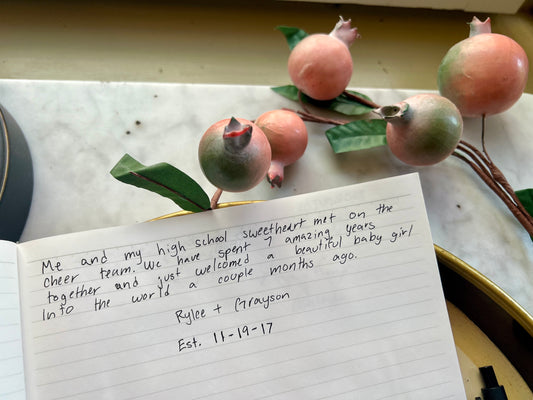 Me and my high school sweetheart met on the
cheer team. We have spent 7 amazing years
together and just welcomed a beautiful baby girl
into the world a couple months ago.
Rylee + Grayson
Est. 11-19-17